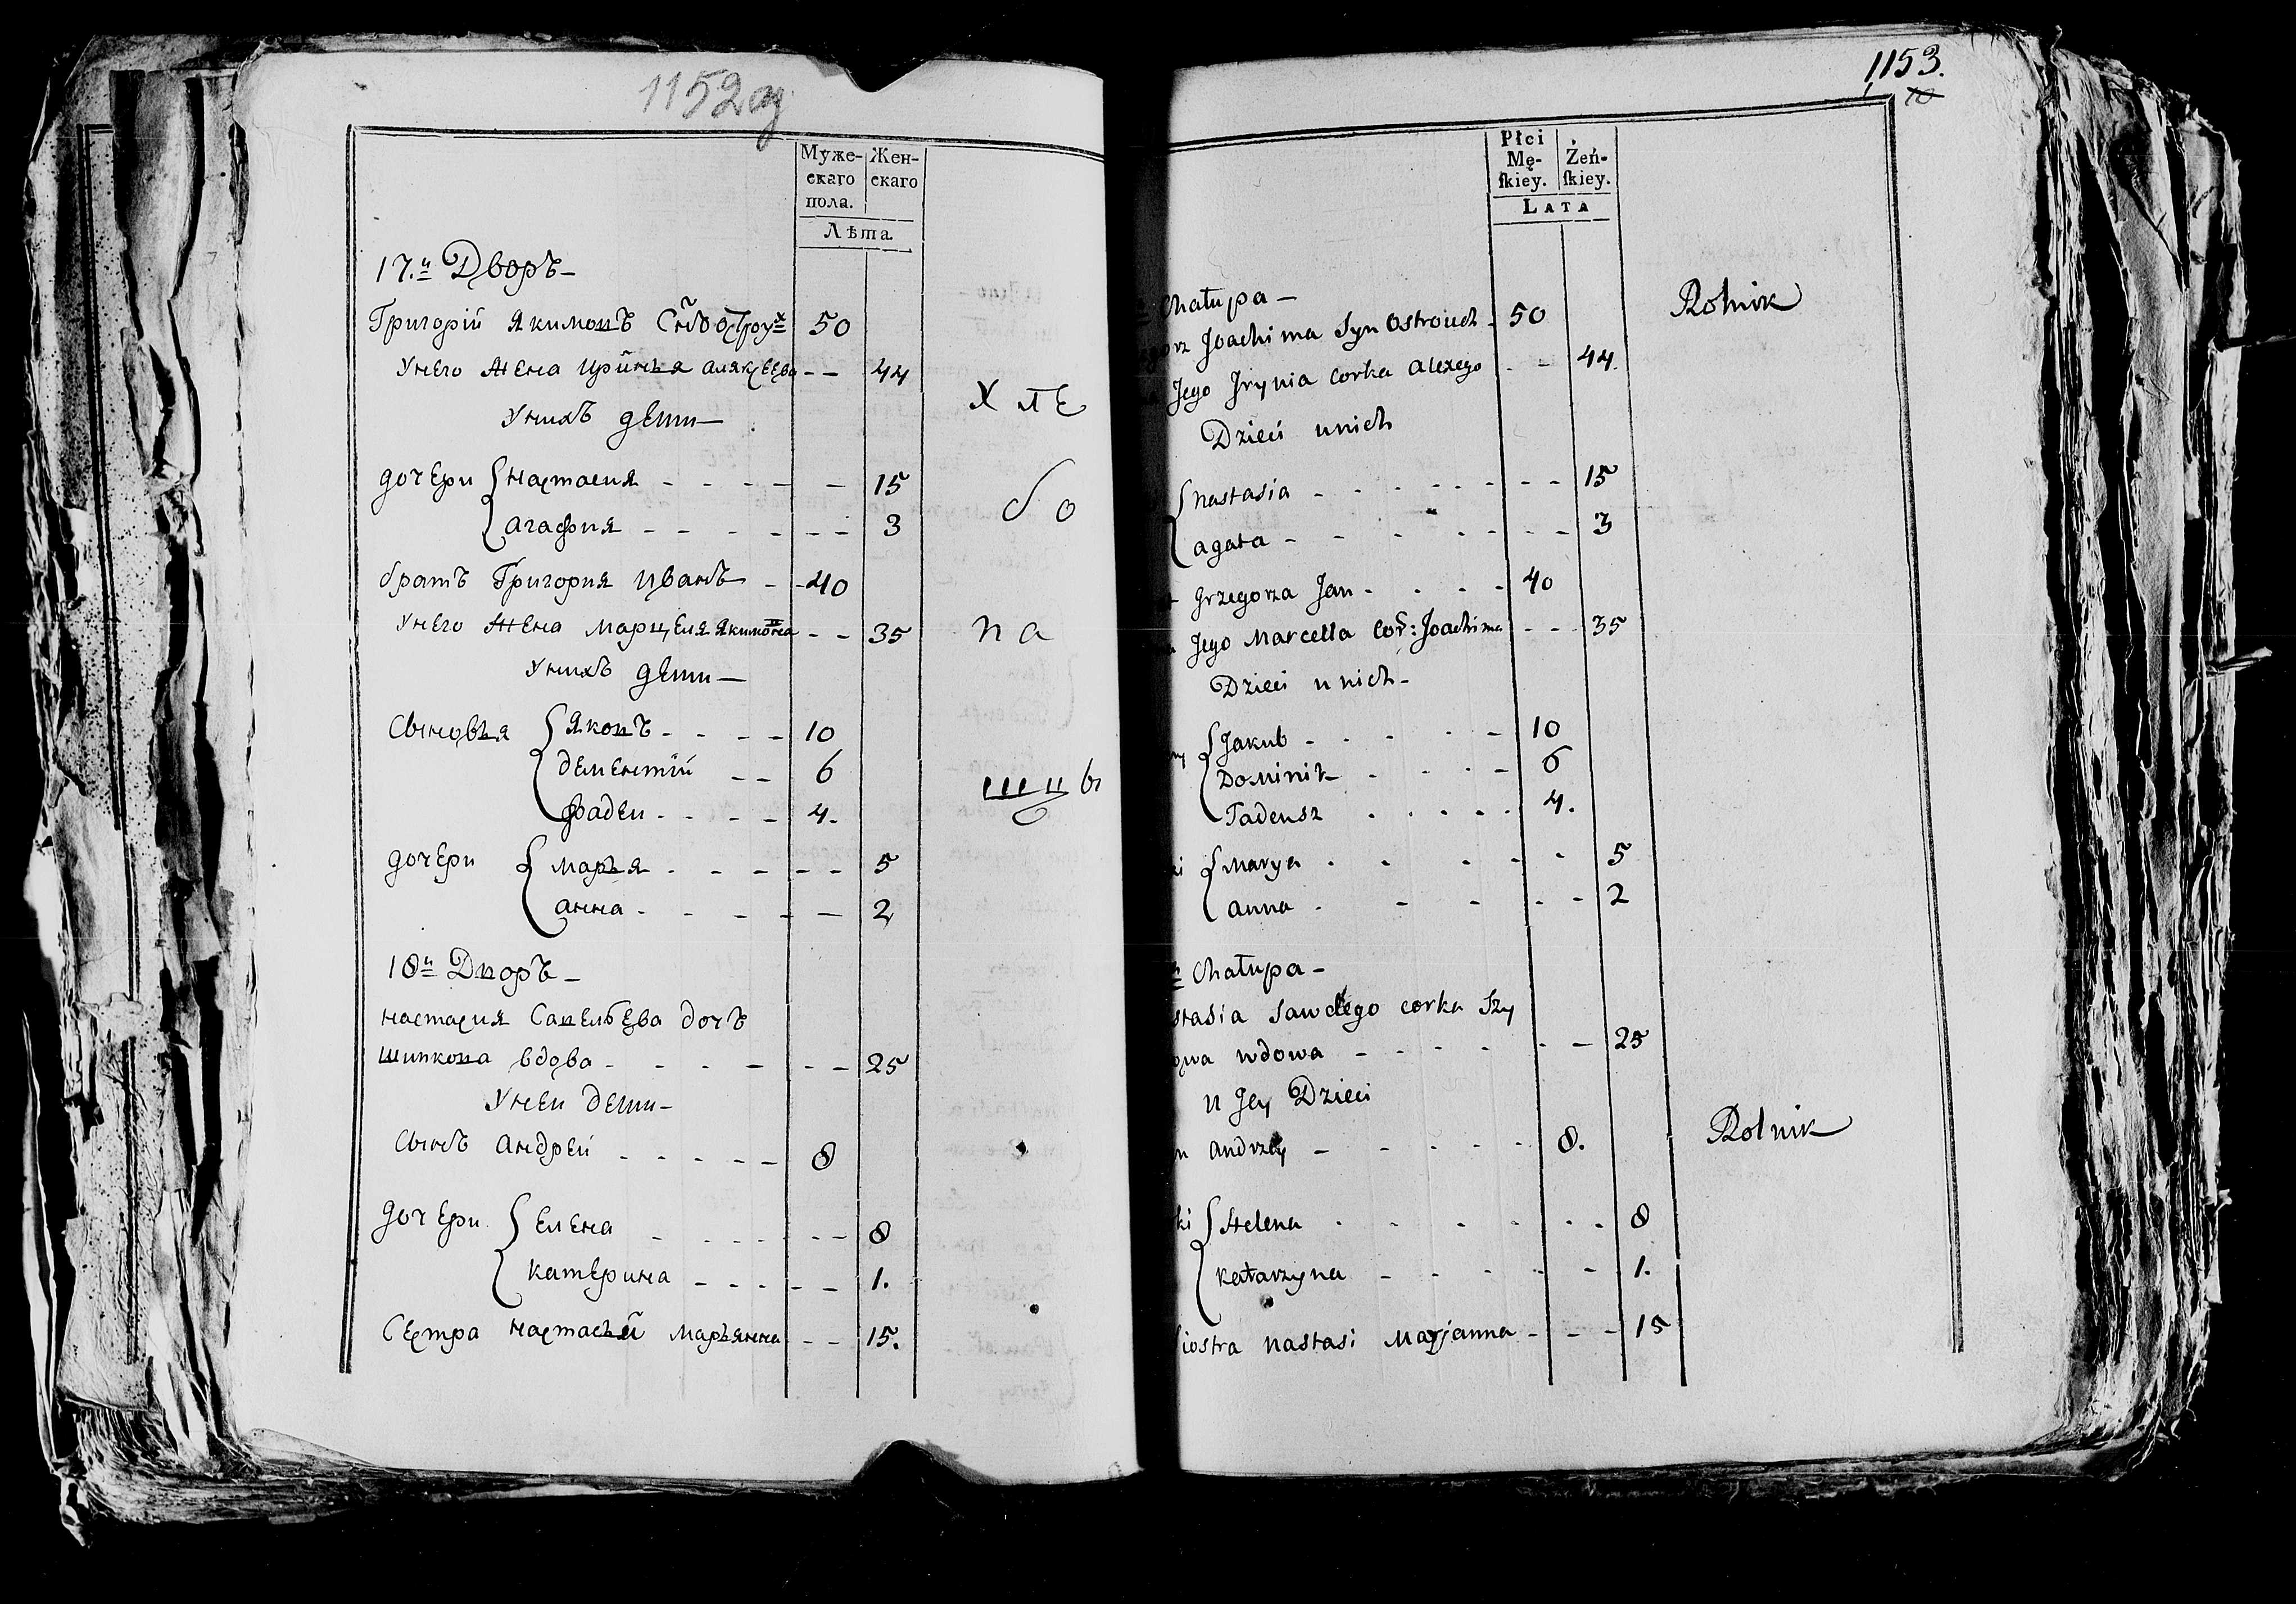 1152
Муже-
скаго
пола.
Жен-
скаго
Лѣта
17.й Дворъ-
Григорій Якимовъ Сынъ Остроух 50
Унего жена Иринья Аляксеева - - 44
Унихъ дети-
дочери Настасия - - - - - 15
Агафия - - - - - - 3
братъ Григория Иванъ - - 40
Унего жена Марцеля Якимова - - 35
Унихъ дети-
Сыновья Яковъ - - - - 10
Дементий - - 6
Фадеи - - - - 4.
дочери Марья - - - - - - 5
Анна - - - - - 2
18й Дворъ-
Настасия Савельева дочь
Шипкова вдова - - - - - - 25
Унеи дети-
Сынъ Андрей - - - - - 8
дочери Елена - - - - - - - 8
Катерина - - - - - - 1.
Сестра Настасьи Марьянна - - 15.
Хле
бо
па
шцы
1153.
10
Płci
Mę-
ſkiey.
Żeń-
ſkiey.
LATA
Chałupa -
orz Joachima Syn Ostrouch - 50
Rolnik
Jego Jrynia Corka Alexego - - 44.
Dzieci unich
Nastasia - - - - - - - - - 15
Agata - - - - - - - 3
Grzegorza Jan - - - - 40
Jego Marcella Cor: Joachima - - - 35
Dzieci unich -
Jakub - - - - - 10
Dominik - - - - 6
Tadeusz . . . . . 4.
Marya . - - - - 5
Anna . - - - - 2
Chałupa -
stasia Sawelego corka Szy
owa wdowa - - - - - - 25
u Jey Dzieci
n Andrzey - - - - - 8.
Rolnik
ki Helena . - - - . . - 8
Katarzyna - - - - - 1.
iostra Nastasi Maryanna - - - 15